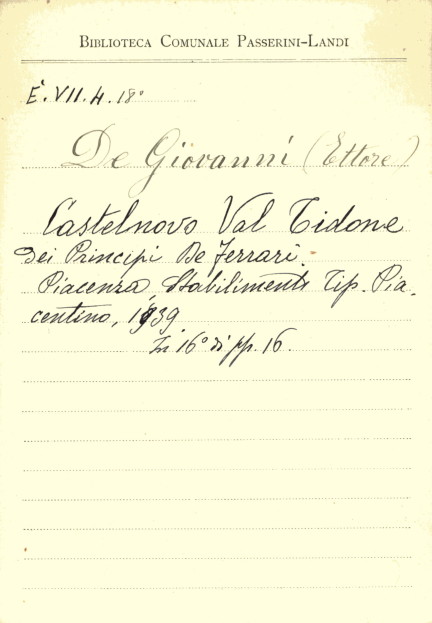 BIBLIOTECA COMUNALE PASSERINI-LANDI
E. VII. 4. 18°
De Giovanni (Ettore)
Castelnovo Val Tidone
dei Principi De Ferrari.
Piacenza, Stabilimento Tip. Pia-
centino, 1939
In 16° di pp. 16.